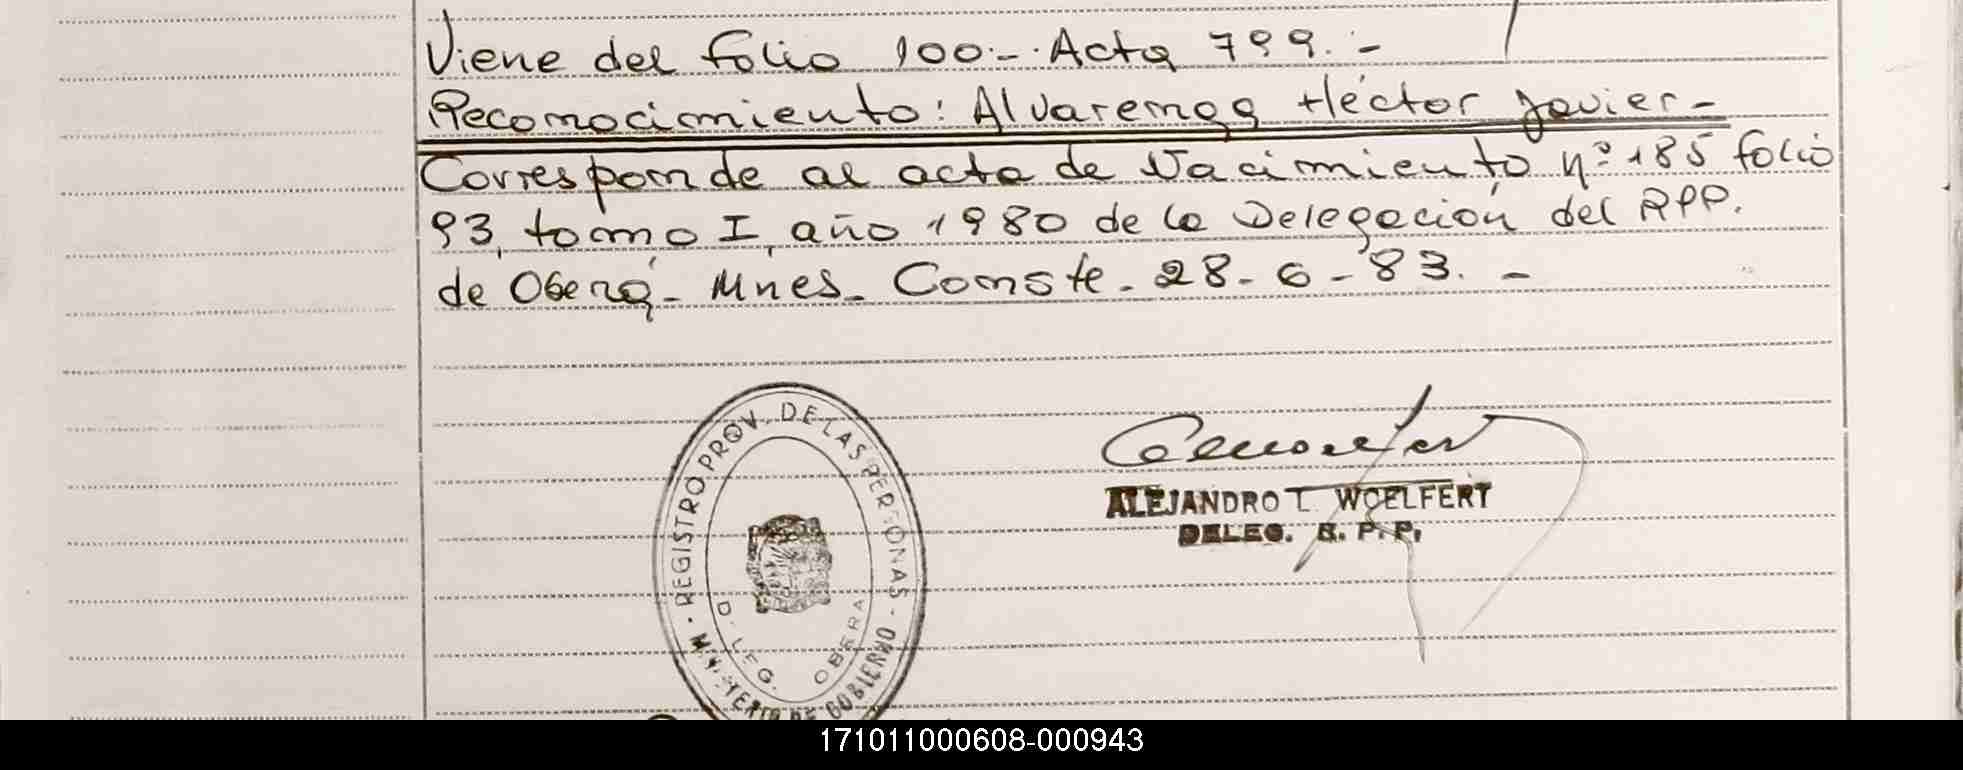 Viene del folio 100.-. Acta 799.-
Reconocimiento: Alvarenga Héctor Javier-
Corresponde al acta de Nacimiento nº 185 folio
93, tomo I, año 1980 de la Delegación del RPP.
de Oberá- Mnes. Conste. 28-6-83.-
REGISTRO PROV. DE LAS PERSONAS -
DELEG. OBERA
MINISTERIO DE GOBIERNO
ALEJANDRO T. WOELFERT
DELEG. R. P. P.
171011000608-000943